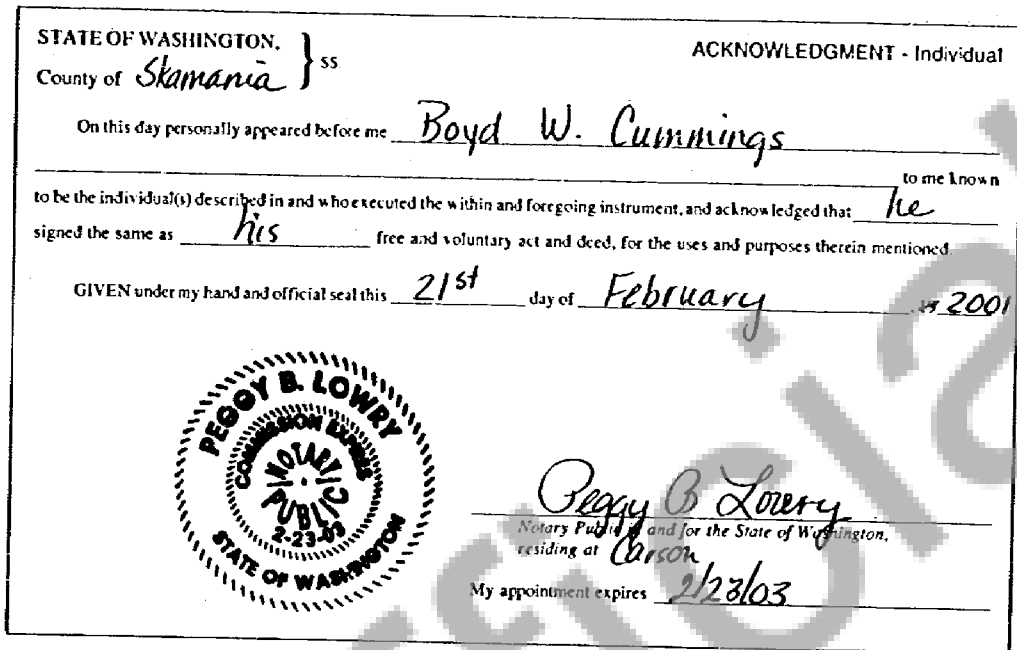 STATE OF WASHINGTON,
ACKNOWLEDGMENT - Individual
County of Skamania } ss
On this day personally appeared before me Boyd W. Cummings
to me known
to be the individual(s) described in and who executed the within and foregoing instrument, and acknowledged that he
signed the same as his free and voluntary act and deed, for the uses and purposes therein mentioned.
GIVEN under my hand and official seal this 21st day of February 19 2001
PEGGY B. LOWRY
COMMISSION EXPIRES
NOTARY
PUBLIC
2-23-03
STATE OF WASHINGTON
Peggy B Lowry
Notary Public in and for the State of Washington,
residing at Carson
My appointment expires 2/23/03